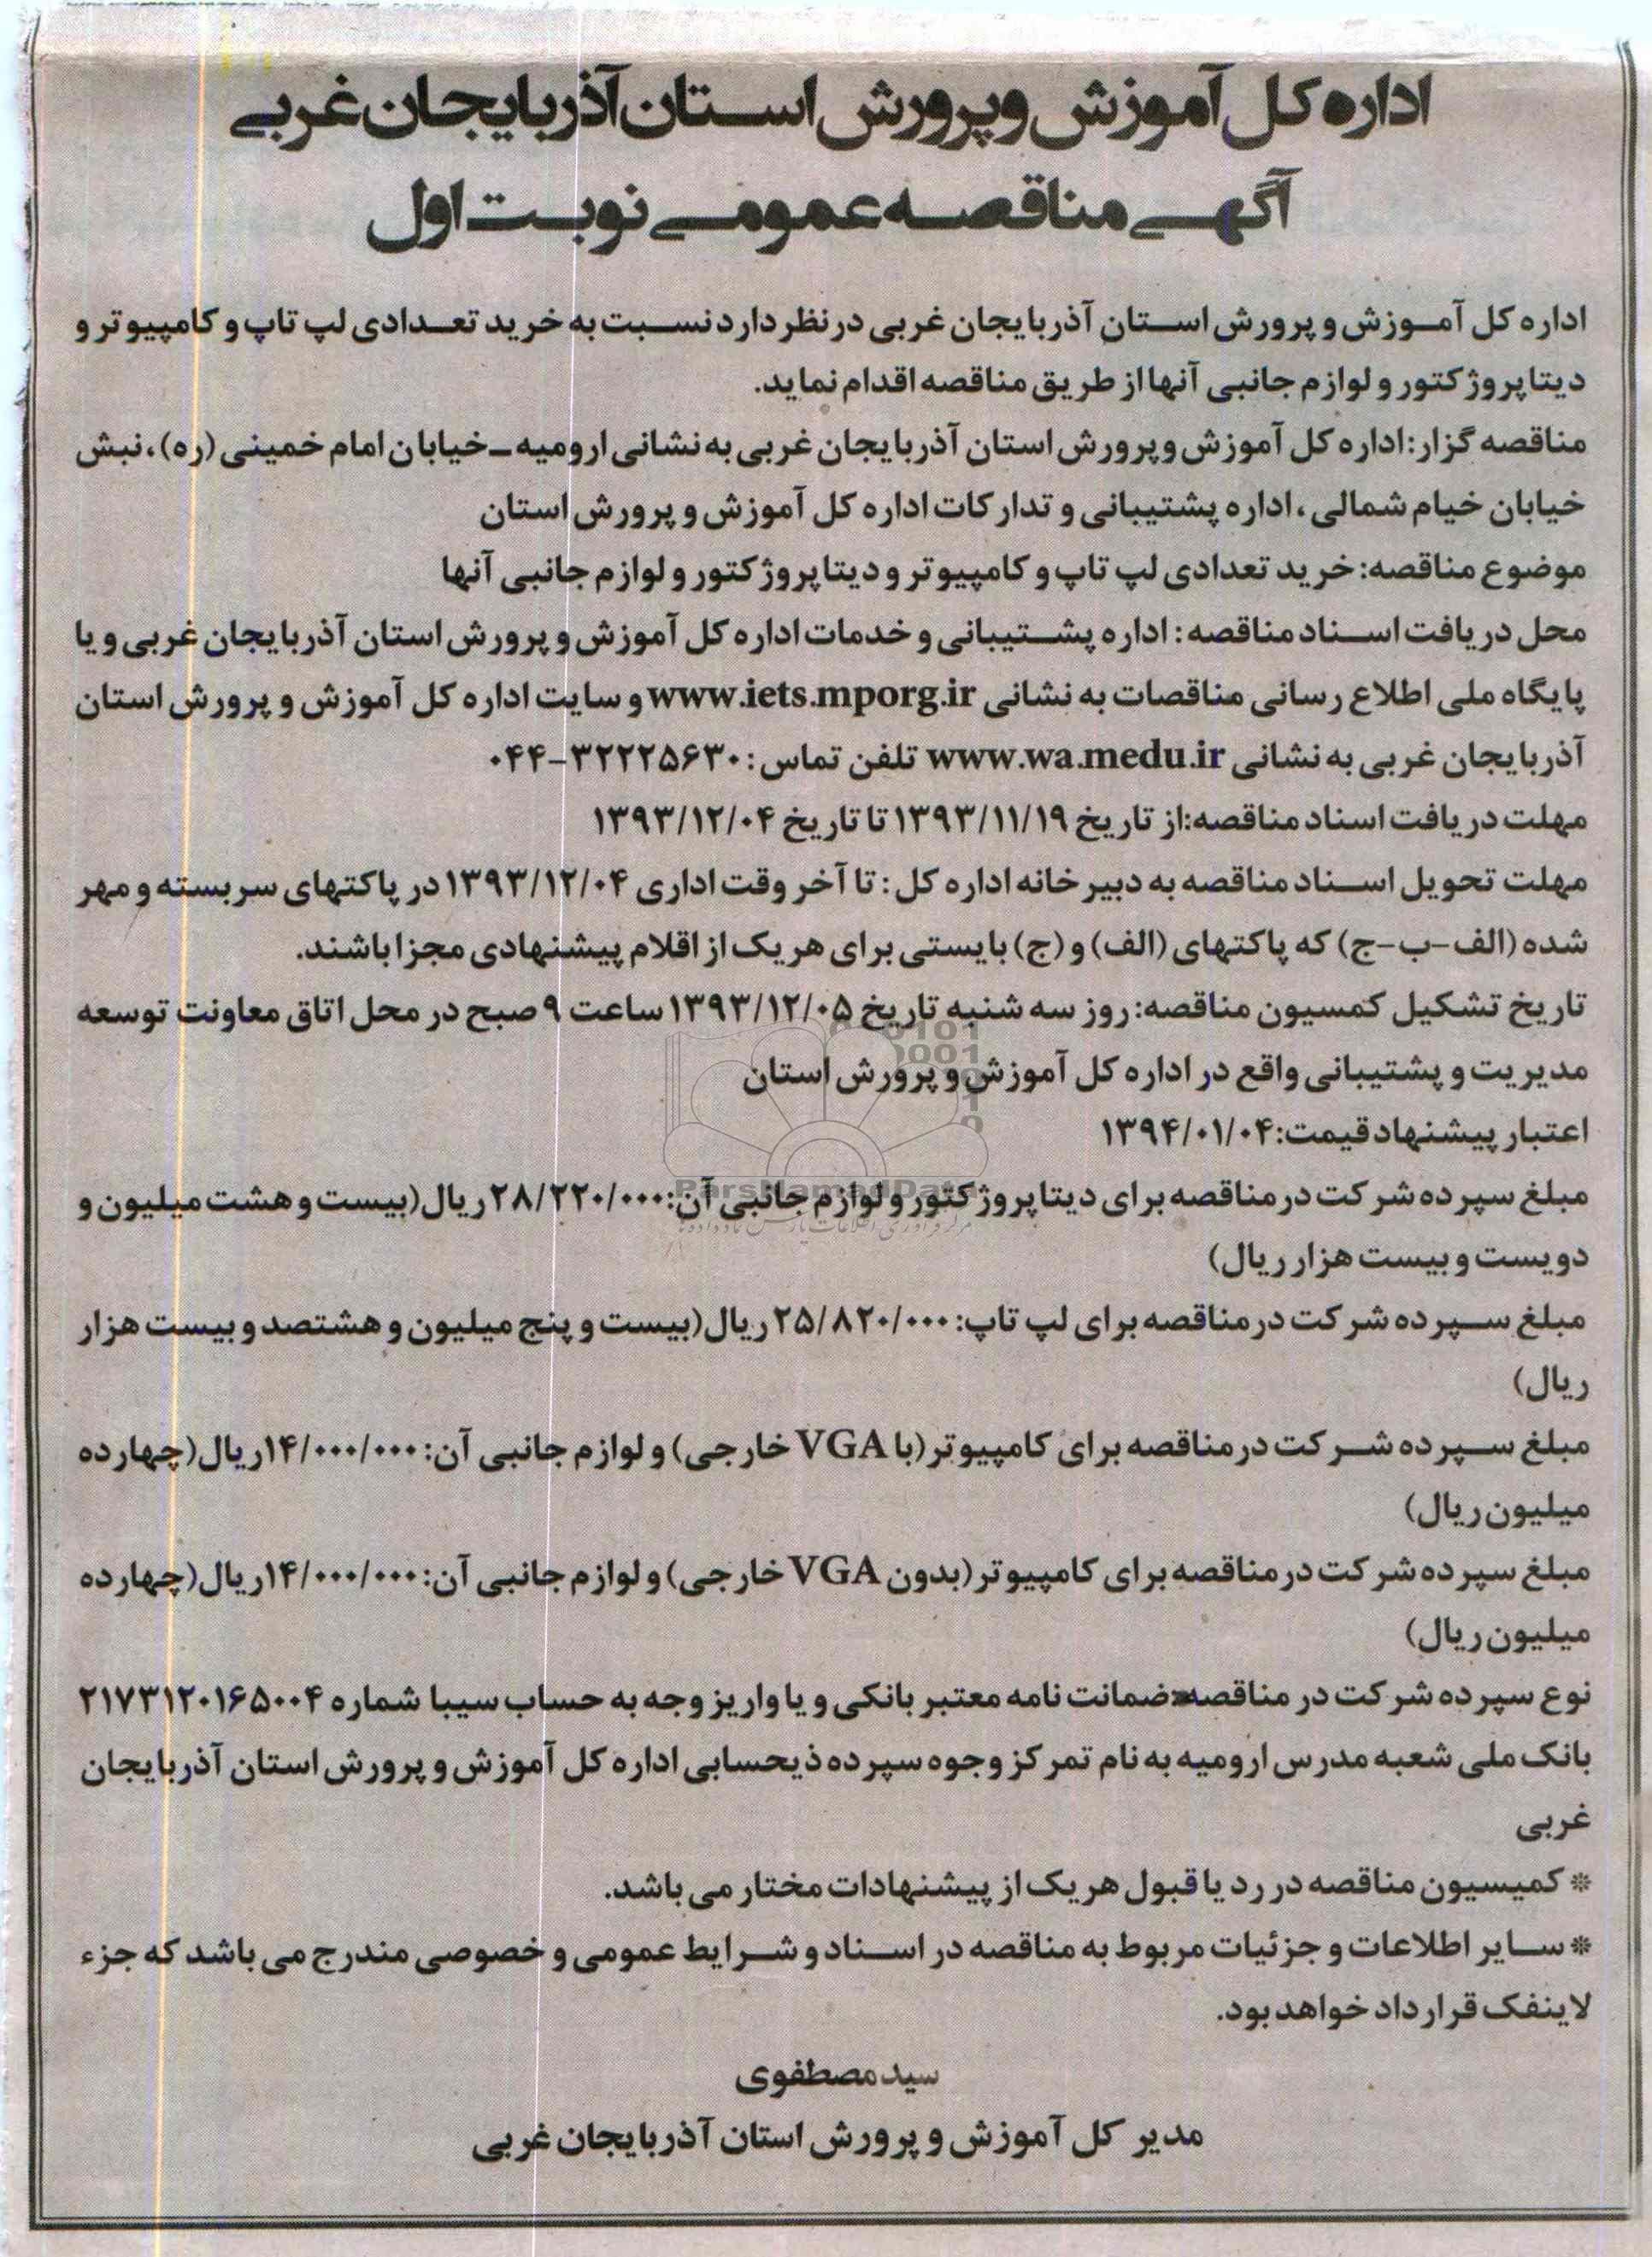 اداره کل آموزش و پرورش استان آذربایجان غربی
آگهی مناقصه عمومی نوبت اول
اداره کل آموزش و پرورش استان آذربایجان غربی در نظر دارد نسبت به خرید تعدادی لپ تاپ و کامپیوتر و
دیتا پروژکتور و لوازم جانبی آنها از طریق مناقصه اقدام نماید.
مناقصه گزار: اداره کل آموزش و پرورش استان آذربایجان غربی به نشانی ارومیه – خیابان امام خمینی (ره)، نبش
خیابان خیام شمالی، اداره پشتیبانی و تدارکات اداره کل آموزش و پرورش استان
موضوع مناقصه: خرید تعدادی لپ تاپ و کامپیوتر و دیتا پروژکتور و لوازم جانبی آنها
محل دریافت اسناد مناقصه: اداره پشتیبانی و خدمات اداره کل آموزش و پرورش استان آذربایجان غربی و یا
پایگاه ملی اطلاع رسانی مناقصات به نشانی www.iets.mporg.ir و سایت اداره کل آموزش و پرورش استان
آذربایجان غربی به نشانی www.wa.medu.ir تلفن تماس: ۳۲۲۲۵۶۳۰-۰۴۴
مهلت دریافت اسناد مناقصه: از تاریخ ۱۳۹۳/۱۱/۱۹ تا تاریخ ۱۳۹۳/۱۲/۰۴
مهلت تحویل اسناد مناقصه به دبیرخانه اداره کل: تا آخر وقت اداری ۱۳۹۳/۱۲/۰۴ در پاکتهای سربسته و مهر
شده (الف-ب-ج) که پاکتهای (الف) و (ج) بایستی برای هر یک از اقلام پیشنهادی مجزا باشند.
تاریخ تشکیل کمسیون مناقصه: روز سه شنبه تاریخ ۱۳۹۳/۱۲/۰۵ ساعت ۹ صبح در محل اتاق معاونت توسعه
مدیریت و پشتیبانی واقع در اداره کل آموزش و پرورش استان
اعتبار پیشنهاد قیمت: ۱۳۹۴/۰۱/۰۴
ParsNamadData
مبلغ سپرده شرکت در مناقصه برای دیتا پروژکتور و لوازم جانبی آن: ۲۸/۲۲۰/۰۰۰ ریال (بیست و هشت میلیون و
دویست و بیست هزار ریال)
مبلغ سپرده شرکت در مناقصه برای لپ تاپ: ۲۵/۸۲۰/۰۰۰ ریال (بیست و پنج میلیون و هشتصد و بیست هزار
ریال)
مبلغ سپرده شرکت در مناقصه برای کامپیوتر (با VGA خارجی) و لوازم جانبی آن: ۱۴/۰۰۰/۰۰۰ ریال (چهارده
میلیون ریال)
مبلغ سپرده شرکت در مناقصه برای کامپیوتر (بدون VGA خارجی) و لوازم جانبی آن: ۱۴/۰۰۰/۰۰۰ ریال (چهارده
میلیون ریال)
نوع سپرده شرکت در مناقصه: ضمانت نامه معتبر بانکی و یا واریز وجه به حساب سیبا شماره ۲۱۷۳۱۲۰۱۶۵۰۰۴
بانک ملی شعبه مدرس ارومیه به نام تمرکز وجوه سپرده ذیحسابی اداره کل آموزش و پرورش استان آذربایجان
غربی
* کمیسیون مناقصه در رد یا قبول هر یک از پیشنهادات مختار می باشد.
* سایر اطلاعات و جزئیات مربوط به مناقصه در اسناد و شرایط عمومی و خصوصی مندرج می باشد که جزء
لاینفک قرارداد خواهد بود.
سید مصطفوی
مدیر کل آموزش و پرورش استان آذربایجان غربی